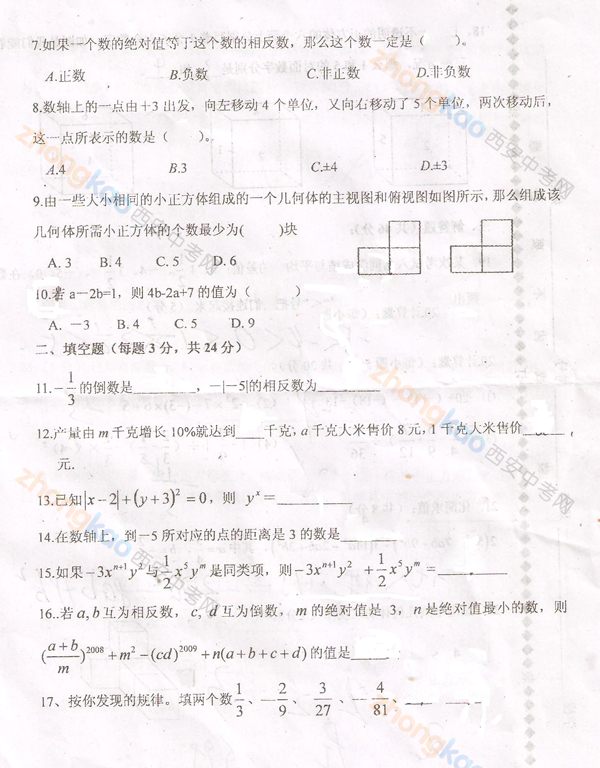 7.如果一个数的绝对值等于这个数的相反数，那么这个数一定是（ ）。
A.正数 B.负数 C.非正数 D.非负数
8.数轴上的一点由＋3出发，向左移动4个单位，又向右移动了5个单位，两次移动后，
这一点所表示的数是（ ）。
A.4 B.3 C.±4 D.±3
9.由一些大小相同的小正方体组成的一个几何体的主视图和俯视图如图所示，那么组成该
几何体所需小正方体的个数最少为( )块
A. 3 B. 4 C. 5 D. 6
10.若 a－2b=1，则 4b-2a+7 的值为（ ）
A. －3 B. 4 C. 5 D. 9
二、填空题（每题 3 分，共 24 分）
11.－1/3 的倒数是________，－|－5|的相反数为________
12.产量由 m 千克增长 10%就达到____千克，a 千克大米售价 8 元，1 千克大米售价______
元.
13.已知|x－2|+(y+3)²=0，则 y^x=________
14.在数轴上，到－5 所对应的点的距离是 3 的数是________
15.如果－3x^{n+1}y²与 1/2 x⁵y^m 是同类项，则－3x^{n+1}y² + 1/2 x⁵y^m =________
16..若 a,b 互为相反数，c, d 互为倒数，m 的绝对值是 3，n 是绝对值最小的数，则
((a+b)/m)^{2008}+m²－(cd)^{2009}+n(a+b+c+d)的值是____
17、按你发现的规律。填两个数 1/3、－2/9、3/27、－4/81、____，____.
zhongkao 西安中考网
zhongkao 西安中考网
zhongkao 西安中考网
zhongkao